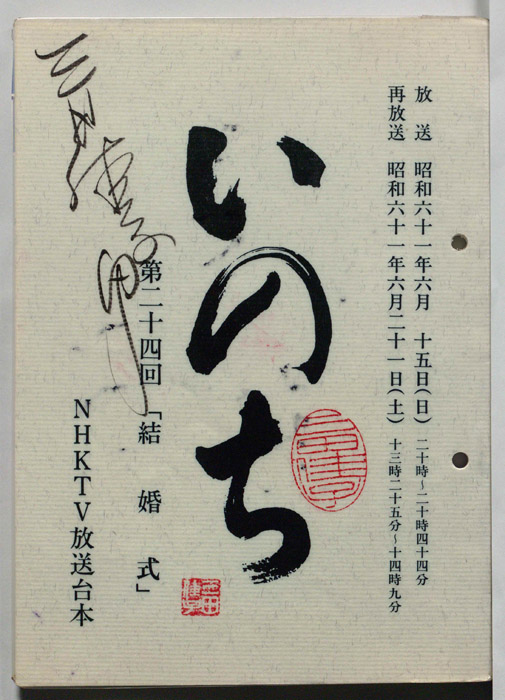 放　送　昭和六十一年六月　十五日(日)　二十時〜二十時四十四分
再放送　昭和六十一年六月二十一日(土)　十三時二十五分〜十四時九分
いのち
第二十四回「結　婚　式」
NHKTV放送台本